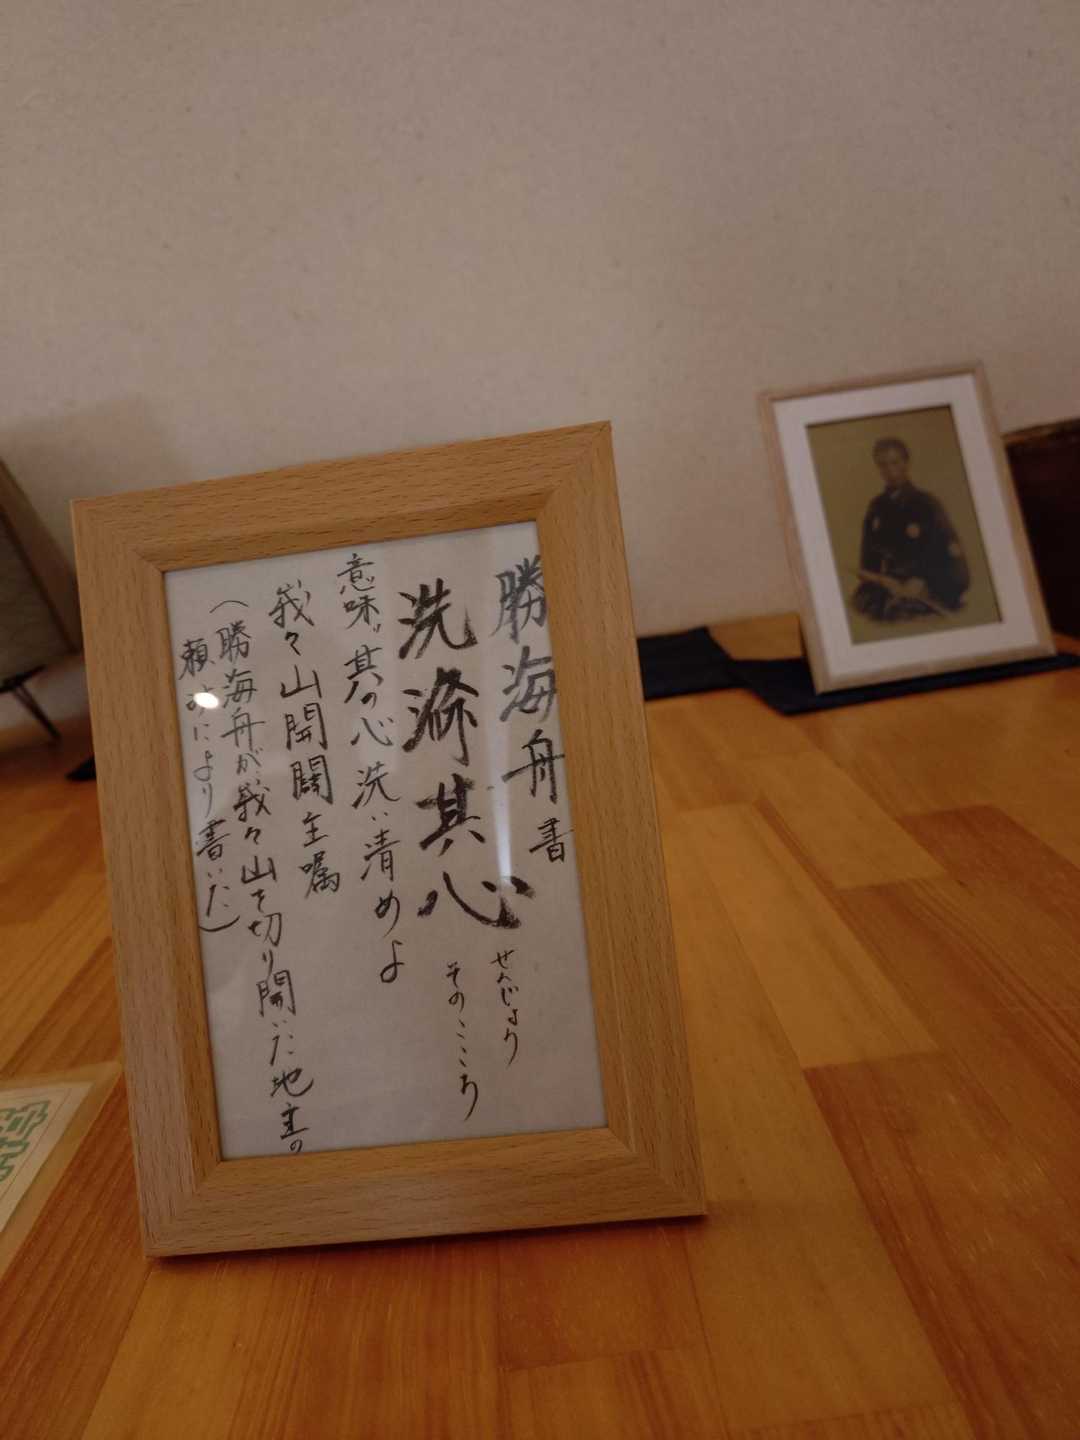 勝海舟書
洗滌其心
せんじょう
そのこころ
意味〃其の心洗い清めよ
我々山開闢主嘱
(勝海舟が我々山を切り開いた地主の
頼みにより書いた)